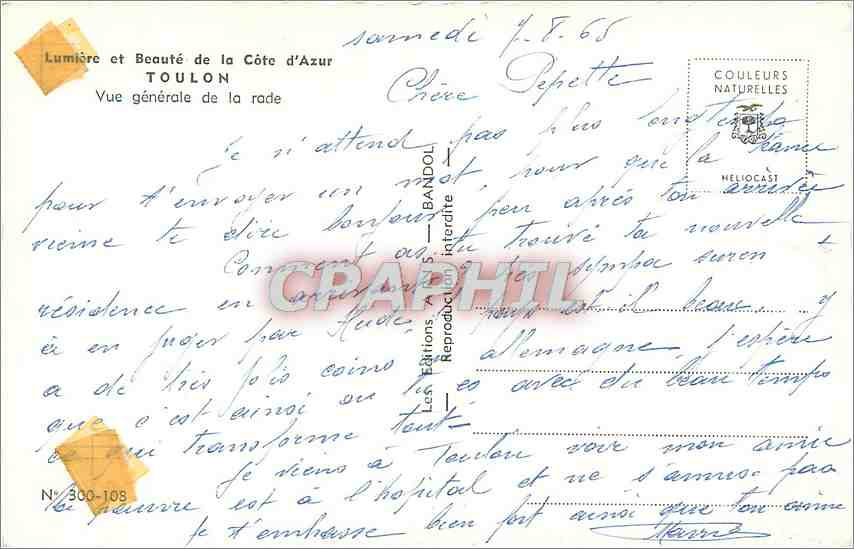 Lumière et Beauté de la Côte d'Azur
TOULON
Vue générale de la rade
samedi 7-8-65
Chère Pepette
COULEURS
NATURELLES
HELIOCAST
Je n'attend pas plus longtemps
pour t'envoyer un mot, pour que la
vienne te dire bonjour, peu après ton arrivée
Comment as tu trouvé ta nouvelle
résidence en arrivant sympa
à en juger par pays est il beau, y
a de très jolis coins en allemagne, j'espère
que c'est ainsi où tu es avec du beau temps
ce qui transforme tout
Je viens à Toulon voir mon amie
la pauvre est à l'hopital et ne s'amuse pas
Je t'embrasse bien fort ainsi que ton
Les Editions A — BANDOL
— Reproduction interdite —
N° 300-108
CPAPHIL